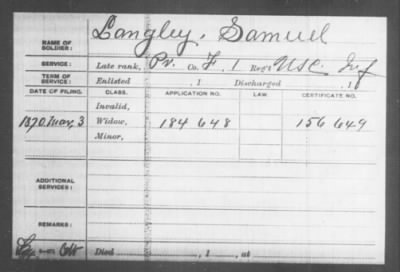 NAME OF SOLDIER: Langley, Samuel
SERVICE: Late rank, Pr. Co. F, 1 Reg't U.S.C. Inf
TERM OF SERVICE: Enlisted , 1 Discharged , 1
DATE OF FILING. CLASS. APPLICATION NO. LAW. CERTIFICATE NO.
Invalid,
1870 Mar, 3 Widow, 184 648 156 649
Minor,
ADDITIONAL SERVICES:
REMARKS:
Died , 1 , at